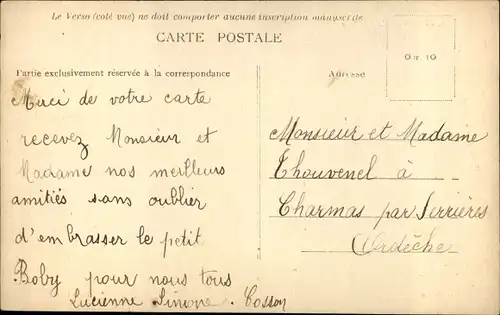 Le Verso (coté vue) ne doit comporter aucune inscription manuscrite
CARTE POSTALE
Partie exclusivement réservée à la correspondance
Adresse
Merci de votre carte
recevez Monsieur et
Madame nos meilleurs
amitiés sans oublier
d'embrasser le petit
Boby pour nous tous
Lucienne Simone Cosson
Monsieur et Madame
Thouvenel à
Charmas par Serrières
Ardèche